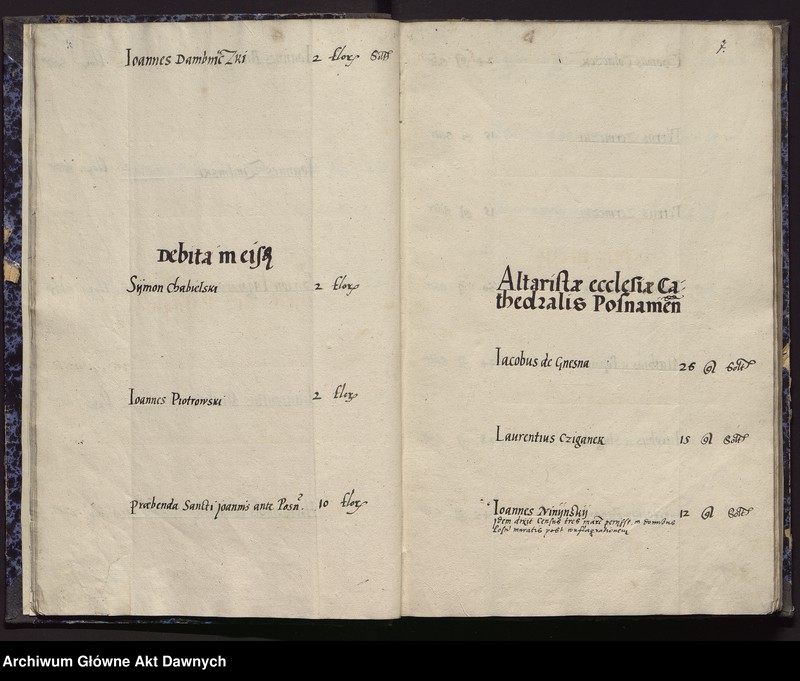 Ioannes Dambniczki 2 flor Solt
Debita in eisq
Symon Chabielski 2 flor
Ioannes Piotrowski 2 flor
Præbenda Sancti Joannis ante Posn. 10 flor
7.
Altaristæ ecclesiæ Ca-
thedralis Posnanien
Iacobus de Gnesna 26 gl Solt
Laurentius Cziganek 15 gl Solt
Ioannes Ninijnskij 12 gl Solt
Idem dixit Census tres in domibus
Posn muratis post conflagrationem
Archiwum Główne Akt Dawnych